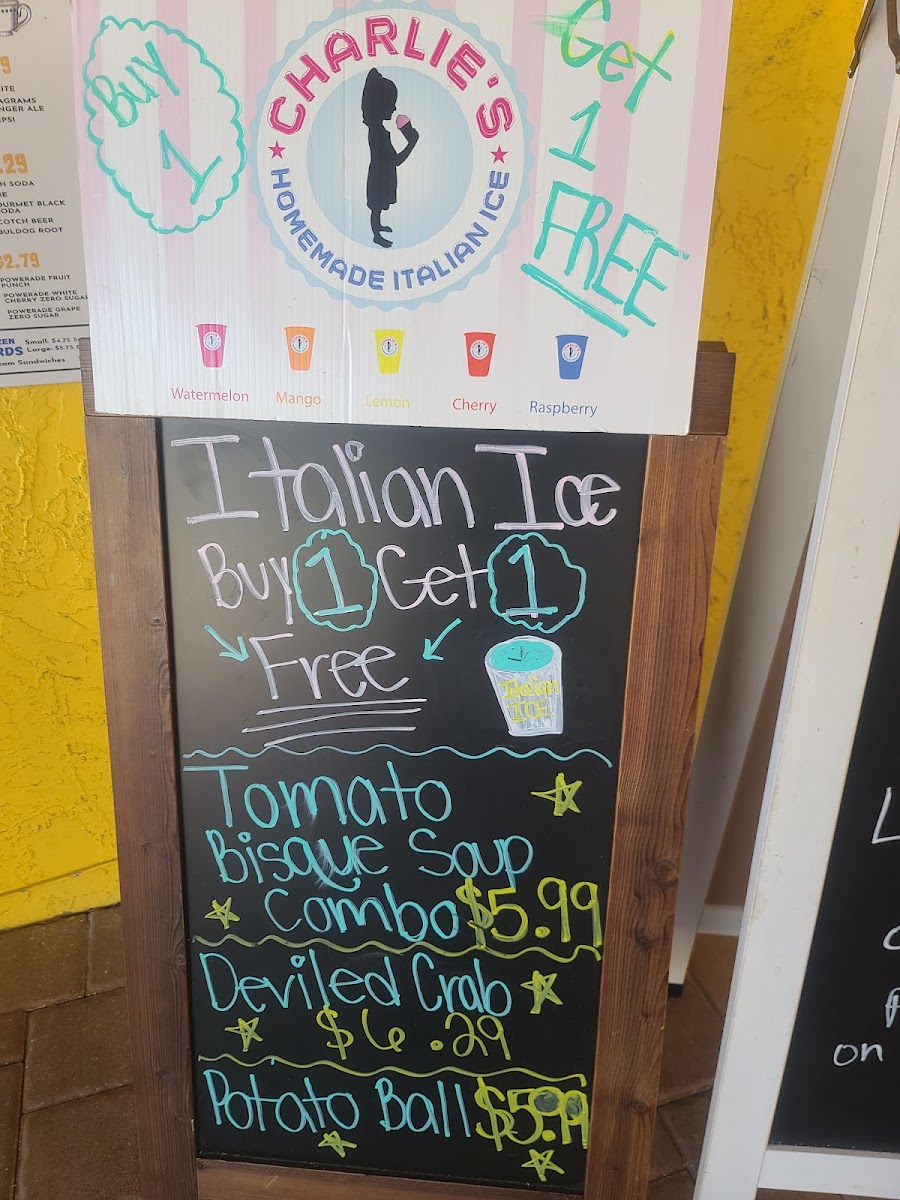 Buy
1
CHARLIE'S
HOMEMADE ITALIAN ICE
Get
1
FREE
Watermelon
Mango
Lemon
Cherry
Raspberry
Italian Ice
Buy 1 Get 1
Free
Italian
ICE
Tomato
Bisque Soup
Combo $5.99
Deviled Crab
$6.29
Potato Ball $5.99
9
GINGER ALE
.29
SODA
GOURMET BLACK
SODA
SCOTCH BEER
BULDOG ROOT
$2.79
POWERADE FRUIT
PUNCH
POWERADE WHITE
CHERRY ZERO SUGAR
POWERADE GRAPE
ZERO SUGAR
Small: $4.75
Large: $5.75
Sandwiches
on